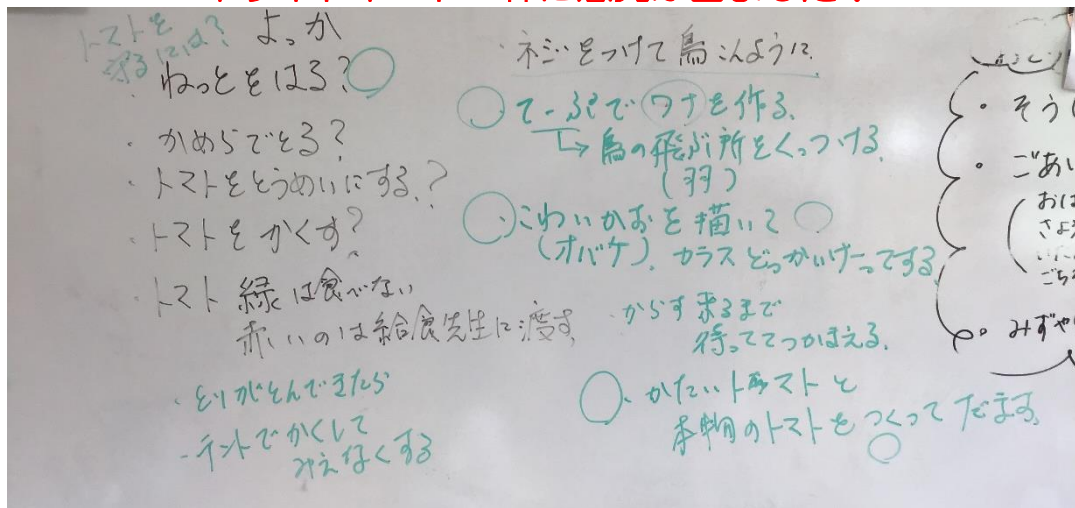 トマトを
よっか
ねっとをはる?
・かめらでとる?
・トマトをとうめいにする?
・トマトをかくす?
・トマト 緑は食べない
赤いのは給食先生に渡す
・とりがとんできたら
・テントでかくして
みえなくする
・ネジをつけて鳥こんように
てーぷでワナを作る
→鳥の飛ぶ所をくっつける
(羽)
・こわいかおを描いて
(オバケ)。カラスどっかいけーってする
・からす来るまで
待っててつかまえる。
・かたいトマトと
本物のトマトをつくってだます。
・そう
・ごあい
おは
さよ
ごち
・みずや